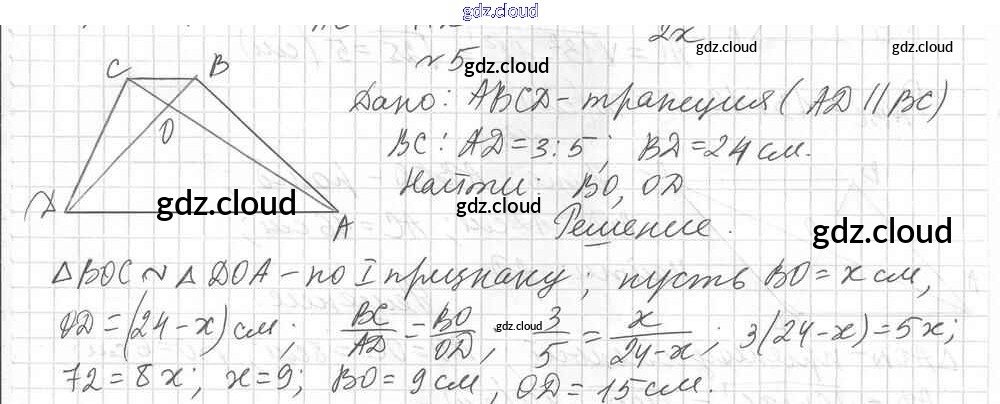 gdz.cloud
2x
gdz.cloud gdz.cloud
№ 5
gdz.cloud
C B
O
D A
Дано: ABCD – трапеция (AD || BC)
BC : AD = 3 : 5; BD = 24 см.
gdz.cloud
Найти: BO, OD
gdz.cloud gdz.cloud
Решение.
gdz.cloud
△BOC ~ △DOA – по I признаку; пусть BO = x см,
OD = (24 – x) см; BC/AD = BO/OD, gdz.cloud 3/5 = x/24-x; 3(24 – x) = 5x;
72 = 8x; x = 9; BO = 9 см, OD = 15 см.